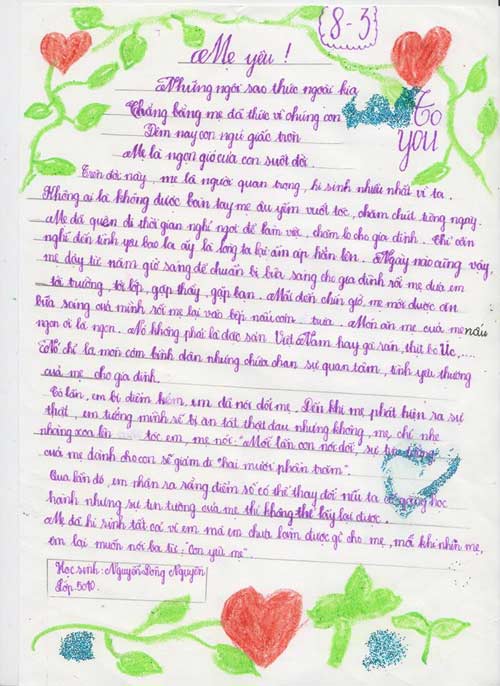 8-3
Mẹ yêu !
To
YOU
Những ngôi sao thức ngoài kia
Chẳng bằng mẹ đã thức vì chúng con
Đêm nay con ngủ giấc tròn
Mẹ là ngọn gió của con suốt đời.
Trên đời này, mẹ là người quan trọng, hi sinh nhiều nhất vì ta.
Không ai là không được bàn tay mẹ âu yếm vuốt tóc, chăm chút từng ngày.
Mẹ đã quên đi thời gian nghỉ ngơi để làm việc, chăm lo cho gia đình. Chỉ cần
nghĩ đến tình yêu bao la ấy là lòng ta lại ấm áp hẳn lên. Ngày nào cũng vậy,
mẹ dậy từ năm giờ sáng để chuẩn bị bữa sáng cho gia đình rồi mẹ đưa em
tới trường, tới lớp, gặp thầy, gặp bạn. Mãi đến chín giờ, mẹ mới được ăn
bữa sáng của mình rồi mẹ lại vào bếp nấu cơm trưa. Món ăn mẹ nấu
ngon ơi là ngon. Nó không phải là đặc sản Việt Nam hay gà rán, thịt bò Úc,....
Nó chỉ là món cơm bình dân nhưng chứa chan sự quan tâm, tình yêu thương
của mẹ cho gia đình.
Có lần, em bị điểm kém, em đã nói dối mẹ. Đến khi mẹ phát hiện ra sự
thật, em tưởng mình sẽ bị ăn tát thật đau nhưng không, mẹ chỉ nhẹ
nhàng xoa lên tóc em, mẹ nói: "Mỗi lần con nói dối, sự tin tưởng
của mẹ dành cho con sẽ giảm đi "hai mươi phần trăm".
Qua lần đó, em nhận ra rằng điểm số có thể thay đổi nếu ta cố gắng học
hành nhưng sự tin tưởng của mẹ thì không thể lấy lại được.
Mẹ đã hi sinh tất cả vì em mà em chưa làm được gì cho mẹ, mỗi khi nhìn mẹ,
em lại muốn nói ba từ: "Con yêu mẹ".
Học sinh: Nguyễn Nguyên
Lớp